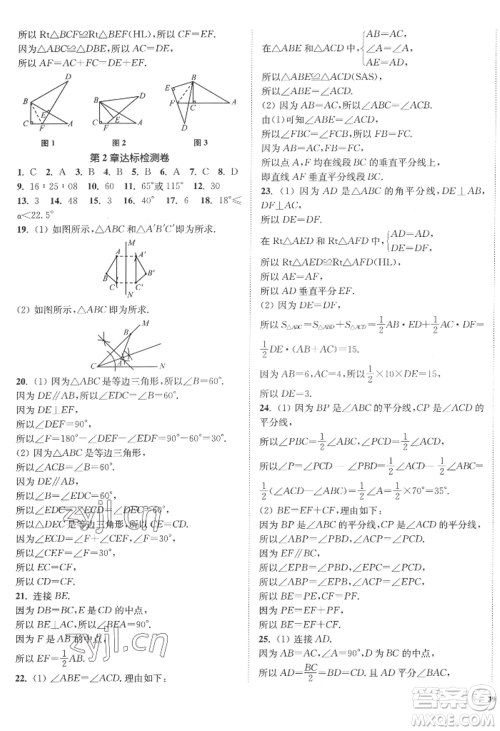 所以 Rt△BCF≌Rt△FBE(HL)，所以 CF=EF.
所以 △ABC≌△DBE，所以 AC=DE.
所以 AF+EF=DE.
图 1 图 2 图 3
第 2 章达标检测卷
1. C 2. D 3. C 4. D 5. B 6. C 7. D 8. D
9. 16：25：08 10. 40 11. 65°或115° 12. 30
13. 3 14. 48 15. 4 16. 3 17. 6 18. 18°≤
α<22.5°
19. (1) 如图所示，△ABC 和△A′B′C′即为所求.
(2) 如图所示，△ABC 即为所求.
20. (1) 因为△ABC 是等边三角形，所以∠B=60°.
因为 DE∥AB，所以∠EDF=∠B=60°.
因为 DE⊥EF，所以∠DEF=90°.
所以∠F=180°-∠EDF-∠DEF=30°.
(2) 因为△ABC 是等边三角形，
所以∠B=∠ACB=60°.
因为 DE∥AB，所以∠EDC=∠B=60°.
所以∠EDC=∠ECD=∠DEC=60°.
所以△DEC 是等边三角形，所以 CE=CD.
因为∠ECD=∠F+∠CEF，∠F=30°，
所以∠CEF=∠F=30°.
所以 EC=CF. 所以 CD=CF.
21. 连接 BE.
因为 DB=BC，E 是 CD 的中点，
所以 BE⊥CD.
因为 F 是 AB 的中点，
所以 EF=1/2 AB.
22. (1) ∠ABE=∠ACD. 理由如下：
在△ABE 和△ACD 中，{AB=AC, ∠A=∠A, AE=AD,
所以△ABE≌△ACD(SAS).
所以∠ABE=∠ACD.
(2) 因为 AB=AC，所以∠ABC=∠ACB.
由(1)可知∠ABE=∠ACD，
所以∠FBC=∠FCB. 所以 FB=FC.
因为 AB=AC，
所以点 A，F 均在线段 BC 的垂直平分线上，
即直线 AF 垂直平分线段 BC.
23. (1) 因为 AD 是△ABC 的角平分线，DE⊥AB，
DF⊥AC，
所以 DE=DF，∠AED=∠AFD=90°.
在 Rt△AED 与 Rt△AFD 中，{AD=AD, DE=DF,
所以 Rt△AED≌Rt△AFD(HL).
所以 AE=AF.
所以 AD 垂直平分 EF.
(2) 因为 DE=DF，
所以 S△ABC=S△ABD+S△ACD=1/2 AB·DE+1/2 AC·DF=
1/2 DE·(AB+AC)=15.
因为 AB+AC=10，所以 1/2×10×DE=15.
所以 DE=3.
24. (1) 因为 BP 是△ABC 的平分线，CP 是∠ACD 的
平分线，
所以∠PBC=1/2∠ABC，∠PCD=1/2∠ACD.
所以∠BPC=∠PCD-∠PBC=1/2∠ACD-
1/2∠ABC=1/2(∠ACD-∠ABC)=1/2∠A=1/2×70°=35°.
(2) BE=EF+CF. 理由如下：
因为 BP 是∠ABC 的平分线，
所以∠ABP=∠PBC.
因为 EF∥BC，
所以∠EPB=∠PBC.
所以∠ABP=∠EPB.
所以 BE=PE. 同理可得 PF=CF.
所以 BE=PE=EF+PF=EF+CF.
25. (1) 连接 AD.
因为∠BAC=90°，D 为 BC 的中点，
所以 AD=BC/2=BD=DC.
因为 AB=AC，所以∠B=∠C=45°.
zyjl.cn
zyjl.cn
答案圈